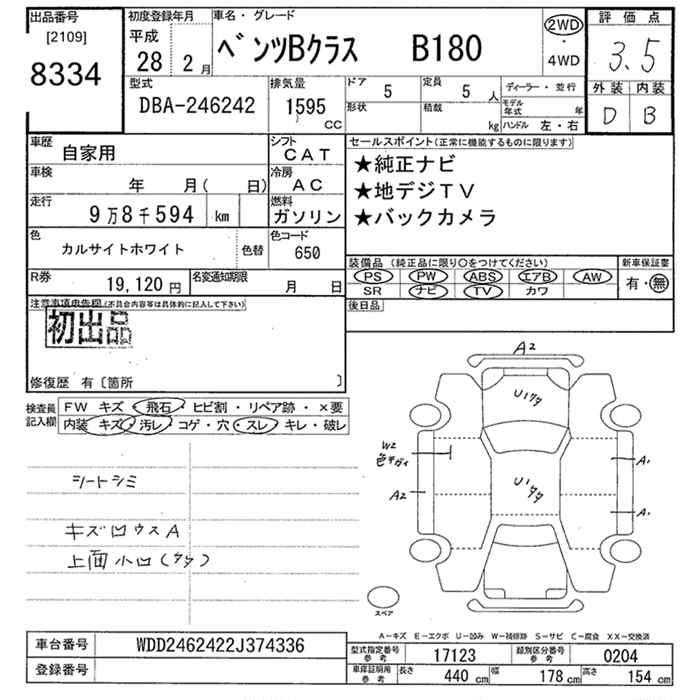 出品番号
[2109]
8334
初度登録年月
平成
28 2月
車名・グレード
ベンツBクラス B180
2WD
・
4WD
評価点
3.5
外装 内装
D B
型式
DBA-246242
排気量
1595
CC
ドア 5
定員 5 人
形状
積載 kg
ディーラー・並行
モデル年式 年
ハンドル 左・右
車歴 自家用
シフト CAT
車検 年 月( 日)
冷房 AC
走行 9万8千594 km
燃料 ガソリン
色 カルサイトホワイト
色替
色コード 650
R券 19,120円
名変通知期限 月 日
セールスポイント(正常に機能するものに限ります)
★純正ナビ
★地デジTV
★バックカメラ
装備品(純正品に限り○をつけてください)
PS PW ABS エアB AW
SR ナビ TV カワ
新車保証書
有・無
後日品
注意事項申告欄(不具合内容等は具体的に記入して下さい)
初出品
修復歴 有〔箇所 〕
検査員記入欄
FW キズ・飛石・ヒビ割・リペア跡・×要
内装 キズ・汚レ・コゲ・穴・スレ・キレ・破レ
シートシミ
キズ凹ウスA
上面小凹(タタ)
A2
U1タタ
W2
色チガイ
A2
U1タタ
A1
A1
スペア
A-キズ E-エクボ U-凹み W-補修跡 S-サビ C-腐食 XX-交換済
車台番号 WDD2462422J374336
登録番号
型式指定番号参考 17123
類別区分番号参考 0204
車庫証明用参考 長さ 440cm 幅 178cm 高さ 154cm